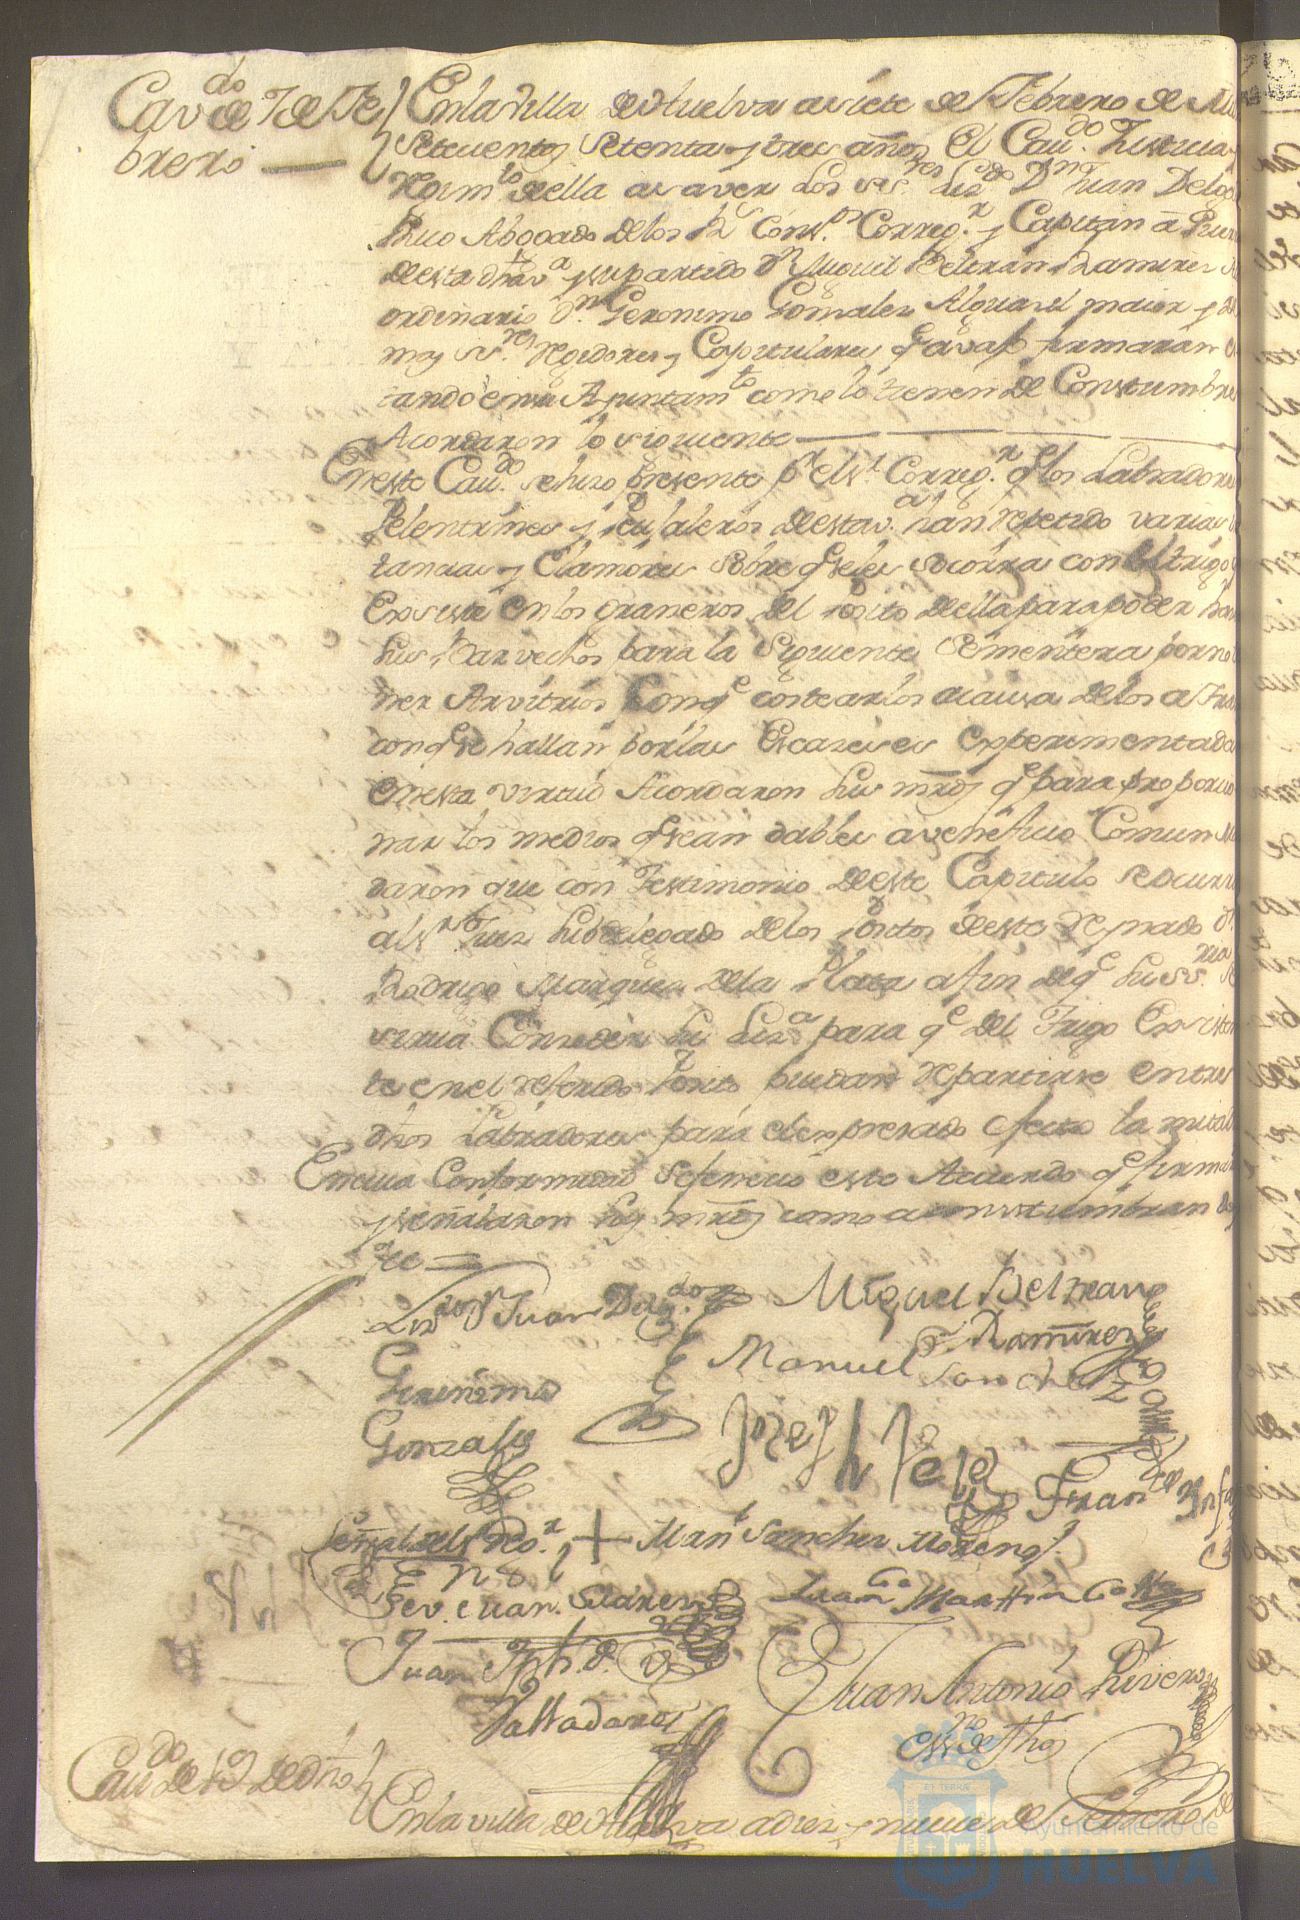 Cav.do de 7 de Fe
brero
En la Villa de Huelva a siete de Febrero de Mil
Setecientos Setenta y tres años El Cau.do Justicia y
Regim.to de ella a saver Los ss.res Liz.do D.n Juan Delg
Rico Abogado de los R.s Cons.os Correg.r y Capitan a Guerr
de esta dha V.a y su partido D.n Miguel Beltran Ramirez
ordinario D.n Geronimo Gonzales Alguacil maior y de
mas ss.res Regidores y Capitulares q.e avajo firmaran es
tando en su Ayuntam.to como lo tienen de Constumbre
Acordaron lo siguiente
En este Cau.do se hizo presente p.r el s.r Correg.r q.e los Labradores
Pelentrines y Peujaleros de esta v.a han repetido varias
tancias y Clamores sobre q.e se les socorra con el trigo
Exsiste en los graneros del Posito de ella para poder
sus Barvechos para la siguiente sementera por no
ner Arvitrios Con q.e costearlos a causa de los a
con q.e se hallan por las Escaseses experimentada
En esta virtud Acordaron sus mrds q.e para proporcio
nar los medios q.e sean dables a veneficio Comun
daron que con Testimonio de este Capitulo se ocurra
al s.r Juez Subdelegado de los Positos de este Reynado D.n
Rodrigo Marques de la Plata a fin de q.e su s.ria se
sirva Conceder su Liz.a para q.e del Trigo Exsisten
te en el referido Posito puedan repartirse entre
dhos Labradores para el expresado efecto la mitad
En cuia Conformidad se fenecio este Acuerdo q.e firma
y señalaron sus mrds como aconstumbran doy
fee
Liz.do D.n Juan Delg.do
Miguel Beltran
Ramirez
Geronimo
Gonzales
Manuel
Sanchez
Joseph Vela
Fran.co
Señal del s.r Reg.r + Man.l Sanchez Moreno
Juan Suares
Juan Martin
Juan Jph. d.
Valladares
Juan Antonio Rivero
ess.no de
Cau.do de 19 de dho
En la villa de Huelva a diez y nueve de Febrero de
Ayuntamiento de
HUELVA